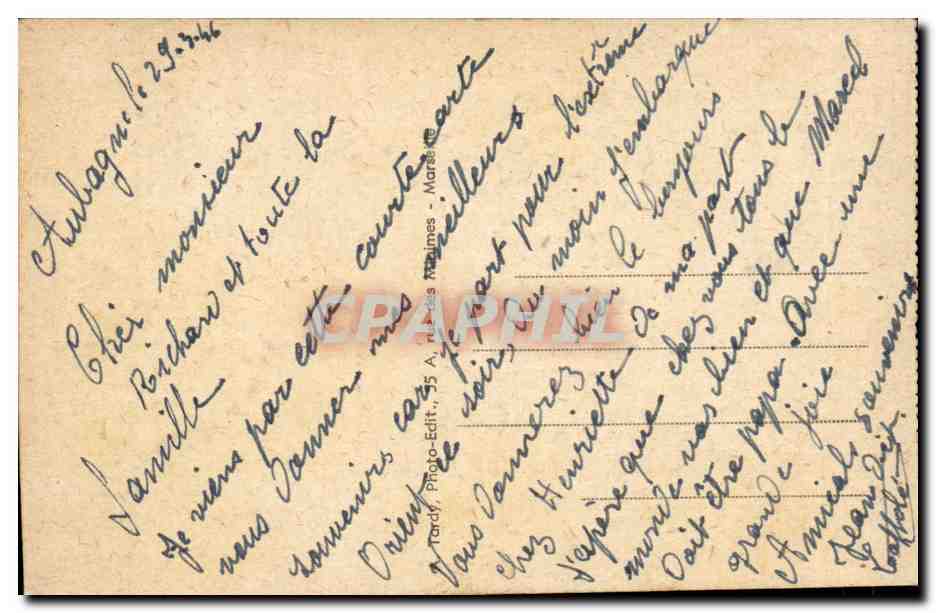 Aubagne le 29.3.46
Cher monsieur
Richard et toute la
famille
Je viens par cette courte carte
vous donner mes meilleurs
souvenirs car je part pour l'extrême
Orient le soir, du moin j'embarque
Vous donnerez bien le bonjours
chez Henriette de ma part
J'espère que chez vous tous le
monde vas bien et que Marcel
doit être papa. Avec une
grande joie
Amicals souvenirs
Jean dit
Tardy, Photo-Edit., 55 A, rue des Minimes - Marseille
CPAPHIL